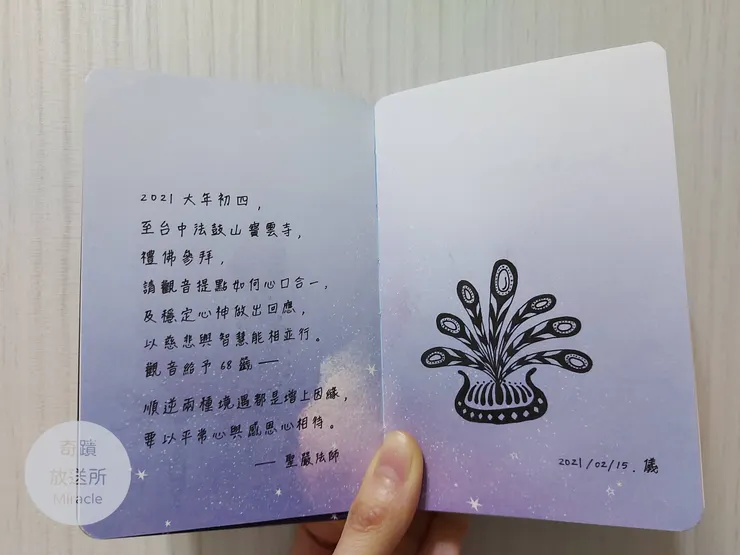 2021 大年初四,
至台中法鼓山寶雲寺,
禮佛參拜,
請觀音提點如何心口合一,
及穩定心神做出回應,
以慈悲與智慧能相並行。
觀音給予 68 籤——
順逆兩種境遇都是增上因緣,
要以平常心與感恩心相待。
—— 聖嚴法師
2021/02/15. 儀
奇蹟
放送所
Miracle